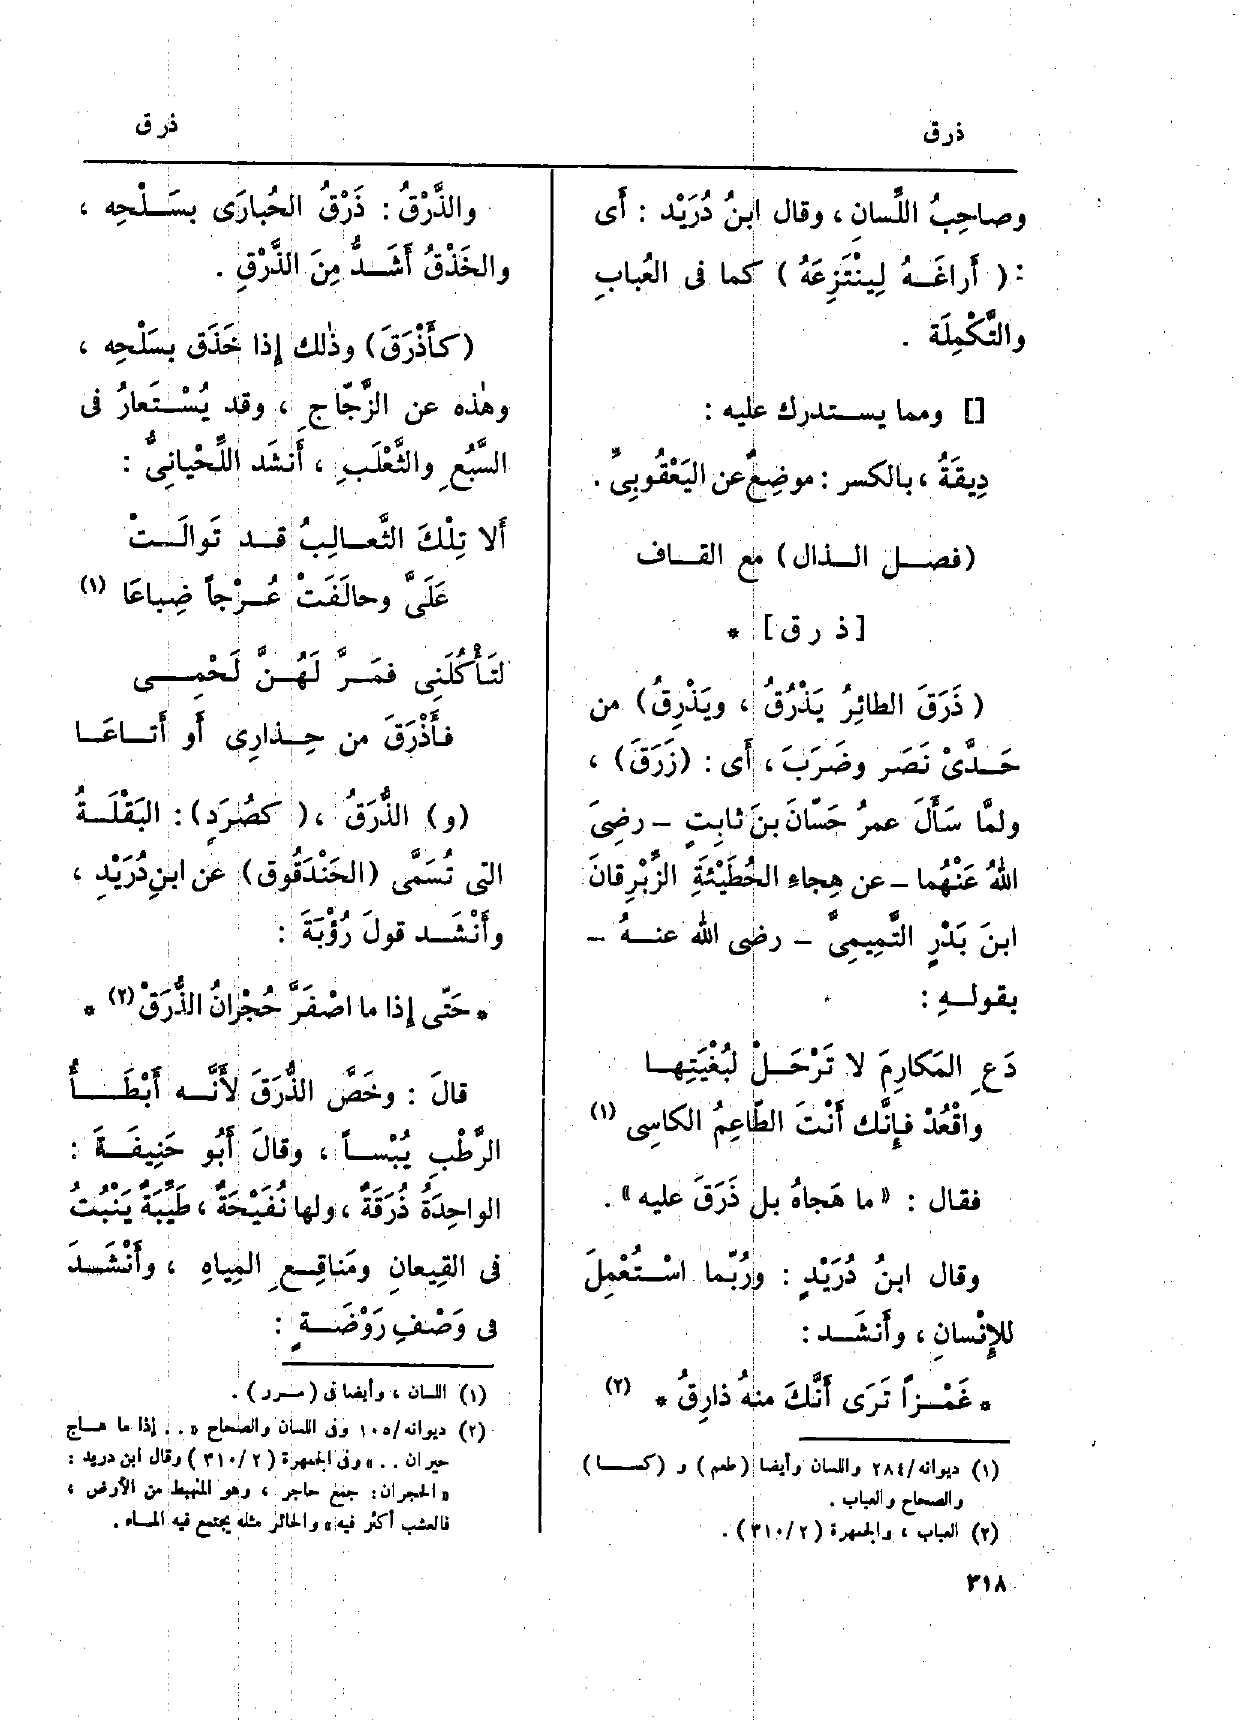 ذرق
ذرق
وصاحِبُ اللِّسانِ ، وقال ابنُ دُرَيْد : أَى
: ( أَراغَــهُ لِينْتَزِعَهُ ) كما فى العُبابِ
والتَّكْمِلَة .
[] ومما يستدرك عليه :
دِيقَةُ ، بالكسر : موضِعٌ عن اليَعْقُوبِىِّ .
(فصل الذال) مع القاف
[ذ ر ق] *
( ذَرَقَ الطائِرُ يَذْرُقُ ، ويَذْرِقُ) من
حَدَّىْ نَصَر وضَرَبَ ، أَى : (زَرَقَ) ،
ولمَّا سَأَلَ عمرُ حَسّانَ بنَ ثابِتٍ – رضِىَ
اللهُ عَنْهُما – عن هِجاءِ الحُطَيْئَةِ الزِّبْرِقانَ
ابنَ بَدْرٍ التَّمِيمِىَّ – رضى الله عنهُ –
بقولهِ :
دَعِ المَكارِمَ لا تَرْحَلْ لبُغْيَتِها
واقْعُدْ فإِنَّك أَنْتَ الطّاعِمُ الكاسِى (١)
فقال : « ما هَجاهُ بل ذَرَقَ عليه » .
وقال ابنُ دُرَيْدٍ : ورُبّما اسْتُعْمِلَ
للإِنْسانِ ، وأَنشَد :
* غَمْزاً تَرَى أَنَّكَ منهُ ذارِقُ * (٢)
(١) ديوانه/٢٨٤ واللسان وأيضا (طعم) و (كسا)
والصحاح والعباب .
(٢) العباب ، والجمهرة (٣١٠/٢) .
٣١٨
والذَّرْقُ : ذَرْقُ الحُبارَى بسَلْحِه ،
والخَذْقُ أَشَدُّ مِنَ الذَّرْقِ .
(كأَذْرَقَ) وذٰلك إِذا خَذَق بسَلْحِه ،
وهٰذه عن الزَّجّاجِ ، وقد يُسْتَعارُ فى
السَّبُعِ والثَّعْلَبِ ، أَنشَد اللِّحْيانِىُّ :
أَلا تِلْكَ الثَّعالِبُ قد تَوالَتْ
عَلَىَّ وحالَفَتْ عُرْجاً ضِباعَا (١)
لتَأْكُلَنِى فمَرَّ لَهُنَّ لَحْمِى
فأَذْرَقَ من حِذارِى أَو أَتاعَا
(و) الذُّرَقُ ، ( كصُرَدٍ) : البَقْلَةُ
التى تُسَمَّى (الحَنْدَقُوق) عن ابنِ دُرَيْدٍ ،
وأَنْشَد قولَ رُؤْبَةَ :
* حَتّى إِذا ما اصْفَرَّ حُجْرانُ الذُّرَقْ (٢) *
قالَ : وخَصَّ الذُّرَقَ لأَنَّه أَبْطَأُ
الرَّطْبِ يُبْساً ، وقالَ أَبُو حَنِيفَةَ :
الواحِدَةُ ذُرَقَةٌ ، ولها نُفَيْحَةٌ ، طَيِّبَةٌ يَنْبُتُ
فى القِيعانِ ومَناقِعِ المِياهِ ، وأَنْشَدَ
فى وَصْفِ رَوْضَةٍ :
(١) اللسان ، وأيضا فى (مرر) .
(٢) ديوانه/١٠٥ وفى اللسان والصحاح « .. إذا ما هاج
حيران .. » وفى الجمهرة (٣١٠/٢) وقال ابن دريد :
« الحجران : جمع حاجر ، وهو المنهبط من الأرض ،
فالعشب أكثر فيه » والحائر مثله يجتمع فيه الماء .